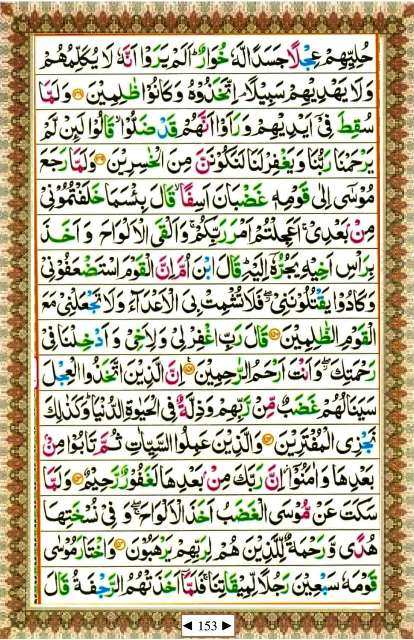 حُلِيِّهِمْ عِجْلًا جَسَدًا لَّهٗ خُوَارٌ ؕ اَلَمْ يَرَوْا اَنَّهٗ لَا يُكَلِّمُهُمْ
وَلَا يَهْدِيْهِمْ سَبِيْلًا ۘ اِتَّخَذُوْهُ وَكَانُوْا ظٰلِمِيْنَ ﴿۱۴۸﴾ وَلَمَّا
سُقِطَ فِيْۤ اَيْدِيْهِمْ وَرَاَوْا اَنَّهُمْ قَدْ ضَلُّوْا ۙ قَالُوْا لَئِنْ لَّمْ
يَرْحَمْنَا رَبُّنَا وَيَغْفِرْ لَنَا لَنَكُوْنَنَّ مِنَ الْخٰسِرِيْنَ ﴿۱۴۹﴾ وَلَمَّا رَجَعَ
مُوْسٰٓى اِلٰى قَوْمِهٖ غَضْبَانَ اَسِفًا ۙ قَالَ بِئْسَمَا خَلَفْتُمُوْنِيْ
مِنْۢ بَعْدِيْ ۚ اَعَجِلْتُمْ اَمْرَ رَبِّكُمْ ۚ وَاَلْقَى الْاَلْوَاحَ وَاَخَذَ
بِرَاْسِ اَخِيْهِ يَجُرُّهٗۤ اِلَيْهِ ؕ قَالَ ابْنَ اُمَّ اِنَّ الْقَوْمَ اسْتَضْعَفُوْنِيْ
وَكَادُوْا يَقْتُلُوْنَنِيْ ۖ فَلَا تُشْمِتْ بِيَ الْاَعْدَآءَ وَلَا تَجْعَلْنِيْ مَعَ
الْقَوْمِ الظّٰلِمِيْنَ ﴿۱۵۰﴾ قَالَ رَبِّ اغْفِرْ لِيْ وَلِاَخِيْ وَاَدْخِلْنَا فِيْ
رَحْمَتِكَ ۖ وَاَنْتَ اَرْحَمُ الرّٰحِمِيْنَ ﴿۱۵۱﴾ اِنَّ الَّذِيْنَ اتَّخَذُوا الْعِجْلَ
سَيَنَالُهُمْ غَضَبٌ مِّنْ رَّبِّهِمْ وَذِلَّةٌ فِي الْحَيٰوةِ الدُّنْيَا ؕ وَكَذٰلِكَ
نَجْزِي الْمُفْتَرِيْنَ ﴿۱۵۲﴾ وَالَّذِيْنَ عَمِلُوا السَّيِّاٰتِ ثُمَّ تَابُوْا مِنْۢ
بَعْدِهَا وَاٰمَنُوْۤا اِنَّ رَبَّكَ مِنْۢ بَعْدِهَا لَغَفُوْرٌ رَّحِيْمٌ ﴿۱۵۳﴾ وَلَمَّا
سَكَتَ عَنْ مُّوْسَى الْغَضَبُ اَخَذَ الْاَلْوَاحَ ۖ وَفِيْ نُسْخَتِهَا
هُدًى وَّرَحْمَةٌ لِّلَّذِيْنَ هُمْ لِرَبِّهِمْ يَرْهَبُوْنَ ﴿۱۵۴﴾ وَاخْتَارَ مُوْسٰى
قَوْمَهٗ سَبْعِيْنَ رَجُلًا لِّمِيْقَاتِنَا ۚ فَلَمَّاۤ اَخَذَتْهُمُ الرَّجْفَةُ قَالَ
◄ 153 ►